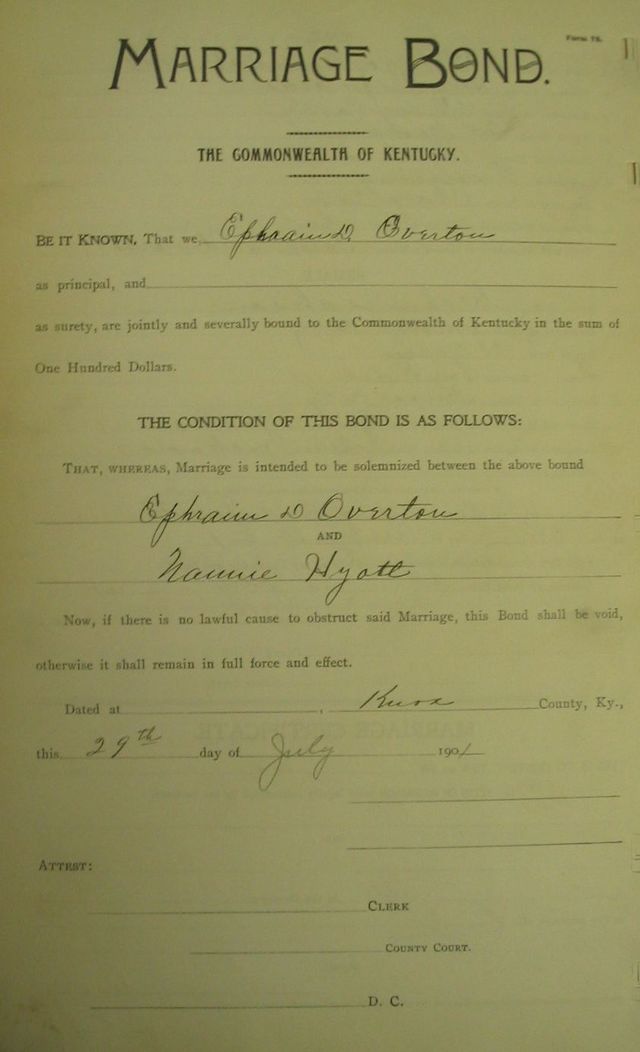 Form 75.
MARRIAGE BOND.
THE COMMONWEALTH OF KENTUCKY.
BE IT KNOWN, That we Ephraim D. Overton
as principal, and
as surety, are jointly and severally bound to the Commonwealth of Kentucky in the sum of
One Hundred Dollars.
THE CONDITION OF THIS BOND IS AS FOLLOWS:
THAT, WHEREAS, Marriage is intended to be solemnized between the above bound
Ephraim D Overton
AND
Nannie Hyatt
Now, if there is no lawful cause to obstruct said Marriage, this Bond shall be void,
otherwise it shall remain in full force and effect.
Dated at , Knox County, Ky.,
this 29th day of July 1901
ATTEST:
CLERK
COUNTY COURT.
D. C.